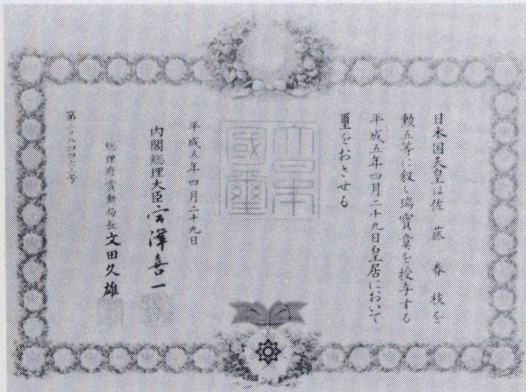 日本国天皇は佐藤春枝を
勲五等に叙し瑞寳章を授与する
平成五年四月二十九日皇居において
璽をおさせる
大日本
國璽
平成五年四月二十九日
内閣総理大臣宮澤喜一
総理府賞勲局長文田久雄